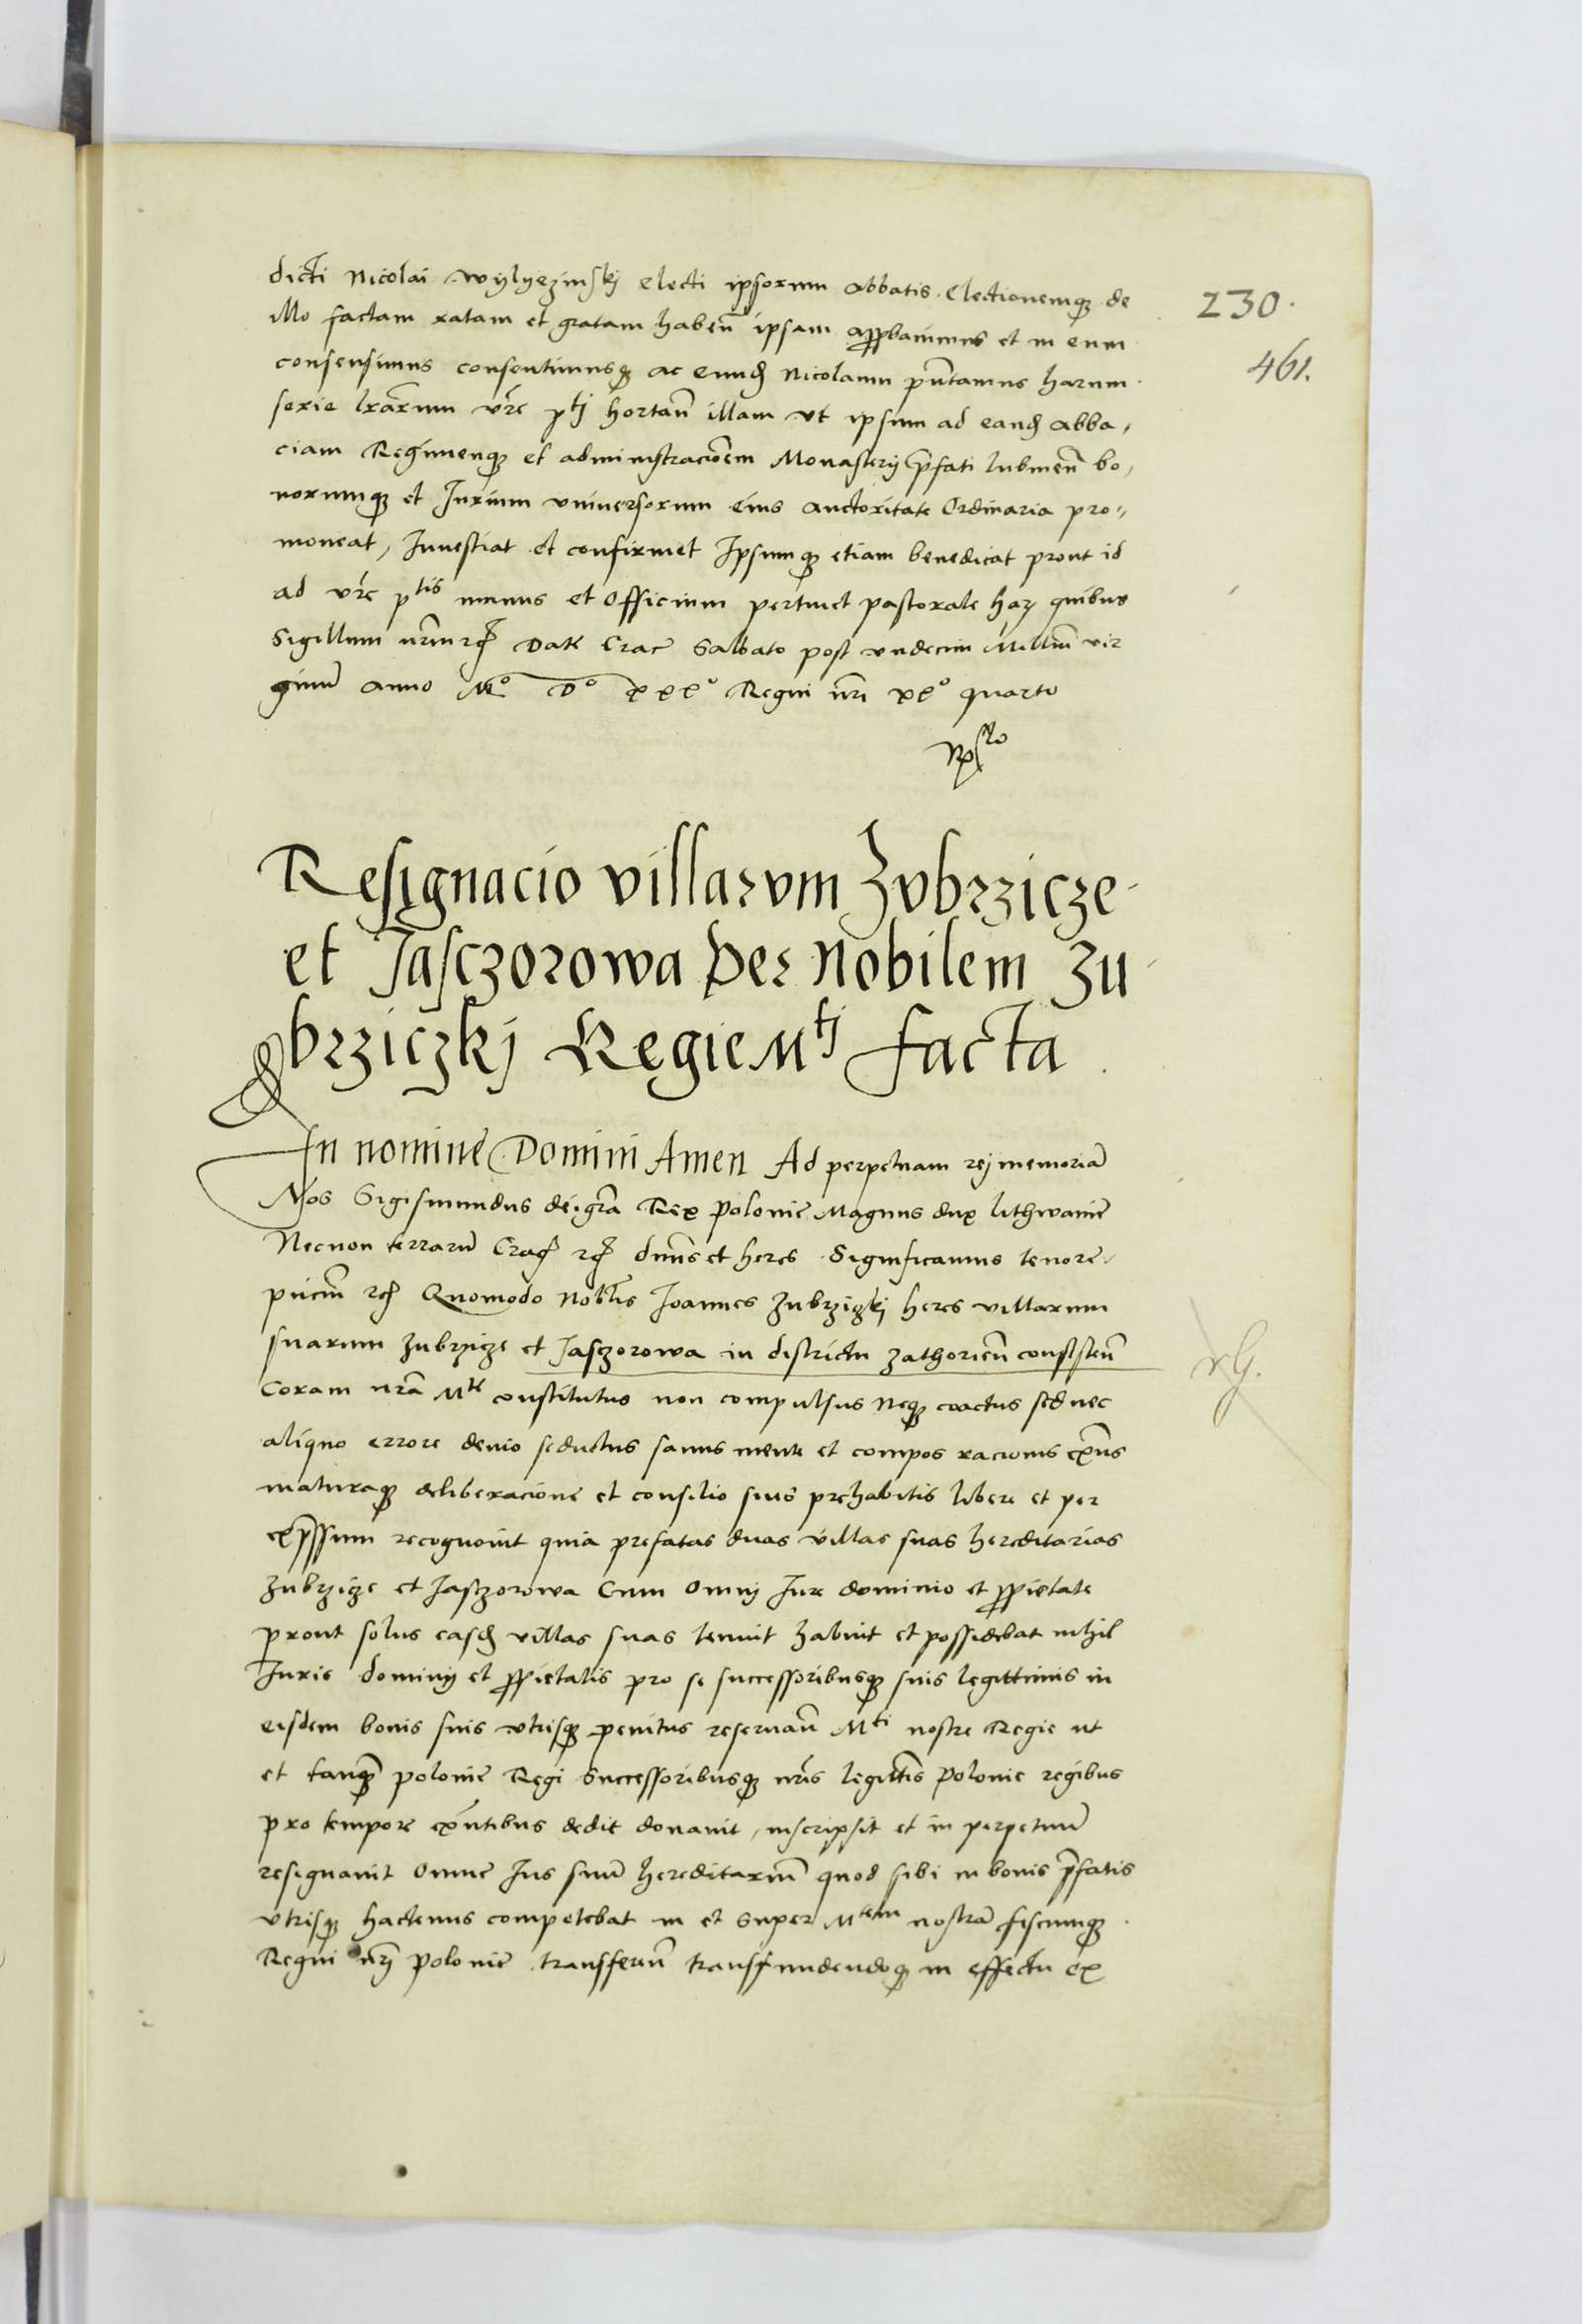 dicti Nicolai Wylyezinskj electi ipsorum abbatis Electionemq de
illo factam ratam et gratam habeñ ipsam approbauimus et in eum
consensimus consentimusq ac eund Nicolaum pñtamus harum
serie lrarum vre ptj hortañ illam vt ipsum ad eand abba,
ciam Regimenq et administracioem Monasterij pfati lubineñ bo,
norumq et Jurium vniuersorum eius auctoritate Ordinaria pro,,
moueat, Jnuestiat et confirmet Jpsumq etiam benedicat prout id
ad vre ptis munus et Officium pertinet pastorale harz quibus
Sigillum nrm rc Dat Crac Sabbato post vndecim Millium vir
ginum anno Mo Do xxxo Regni nri xxo quarto
230.
461.
Resignacio villarvm Zvbrzicze
et Jasczorowa per Nobilem Zu
brziczkj Regie Mtj facta.
In nomine Domini Amen Ad perpetuam rej memoria
Nos Sigismundus dei gra Rex Polonie Magnus dux lithwanie
Necnon terraru Crac rc dnus et heres Significamus tenore
pncm rc Quomodo Nobilis Joannes Zubrziczkj heres villarum
suarum Zubrzicze et Jasczorowa in districtu Zathorieñ consisteñ
Coram nra Mte constitutus non compulsus neq coactus sed nec
aliquo errore deuio seductus sanus mente et compos racionis exñs
maturaq deliberacione et consilio suis prehabitis libere et per
expssum recognouit quia prefatas duas villas suas hereditarias
Zubrzicze et Jasczorowa Cum Omnj Jure dominio et pprietate
prout solus easd villas suas tenuit habuit et possidebat nihil
Juris dominij et pprietatis pro se successoribusq suis legittimis in
eisdem bonis suis vtrisq penitus reseruañ Mti nostre Regie ut
et tanq polonie Regi Successoribusq nris legittis Polonie regibus
pro tempore exñtibus dedit donauit, inscripsit et in perpetuu
resignauit Omne Jus suu hereditarium quod sibi in bonis pfatis
vtrisq hactenus competebat in et super Mtem nostra fiscumq
Regni nrj Polonie transfereñ transfundendoq in effectu ex